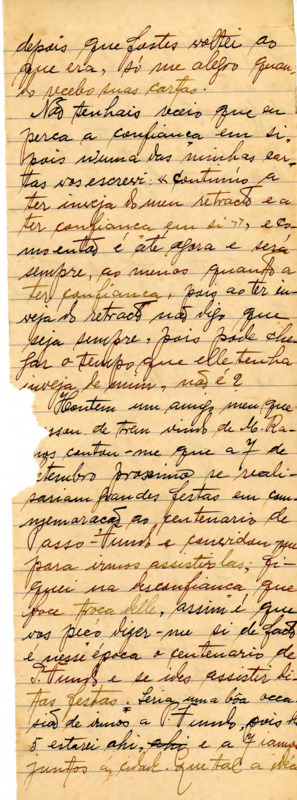 depois que fostes voltei ao
que era, só me alegro quan-
do recebo suas cartas.
Não tenhais receio que eu
perca a confiança em si,
pois n'uma das minhas car-
tas vos escrevi: « continuo a
ter inveja do meu retracto e a
ter confiança em si », e co-
mo então é até agora e será
sempre, ao menos quanto a
ter confiança, pois ao ter in-
veja do retracto não digo que
seja sempre, pois pode che-
gar o tempo que elle tenha
inveja de mim, não é?
Hontem um amigo meu que
passou de trem vindo de M. Ra-
mos contou-me que a 7 de
setembro proximo se reali-
sariam grandes festas em com-
memoração ao centenario de
Passo-Fundo e convidou-me
para irmos assistir las; fi-
quei na desconfiança que
foce troca delle, assim é que
vos peço dizer-me si de facto
é nesse época o centenario de
P. Fundo e se ides assistir di-
tas festas. Seria uma bôa occa-
sião de irmos a P. Fundo, pois
estarei ahi, e a 7 iamos
juntos á cidade. Que tal a idéa